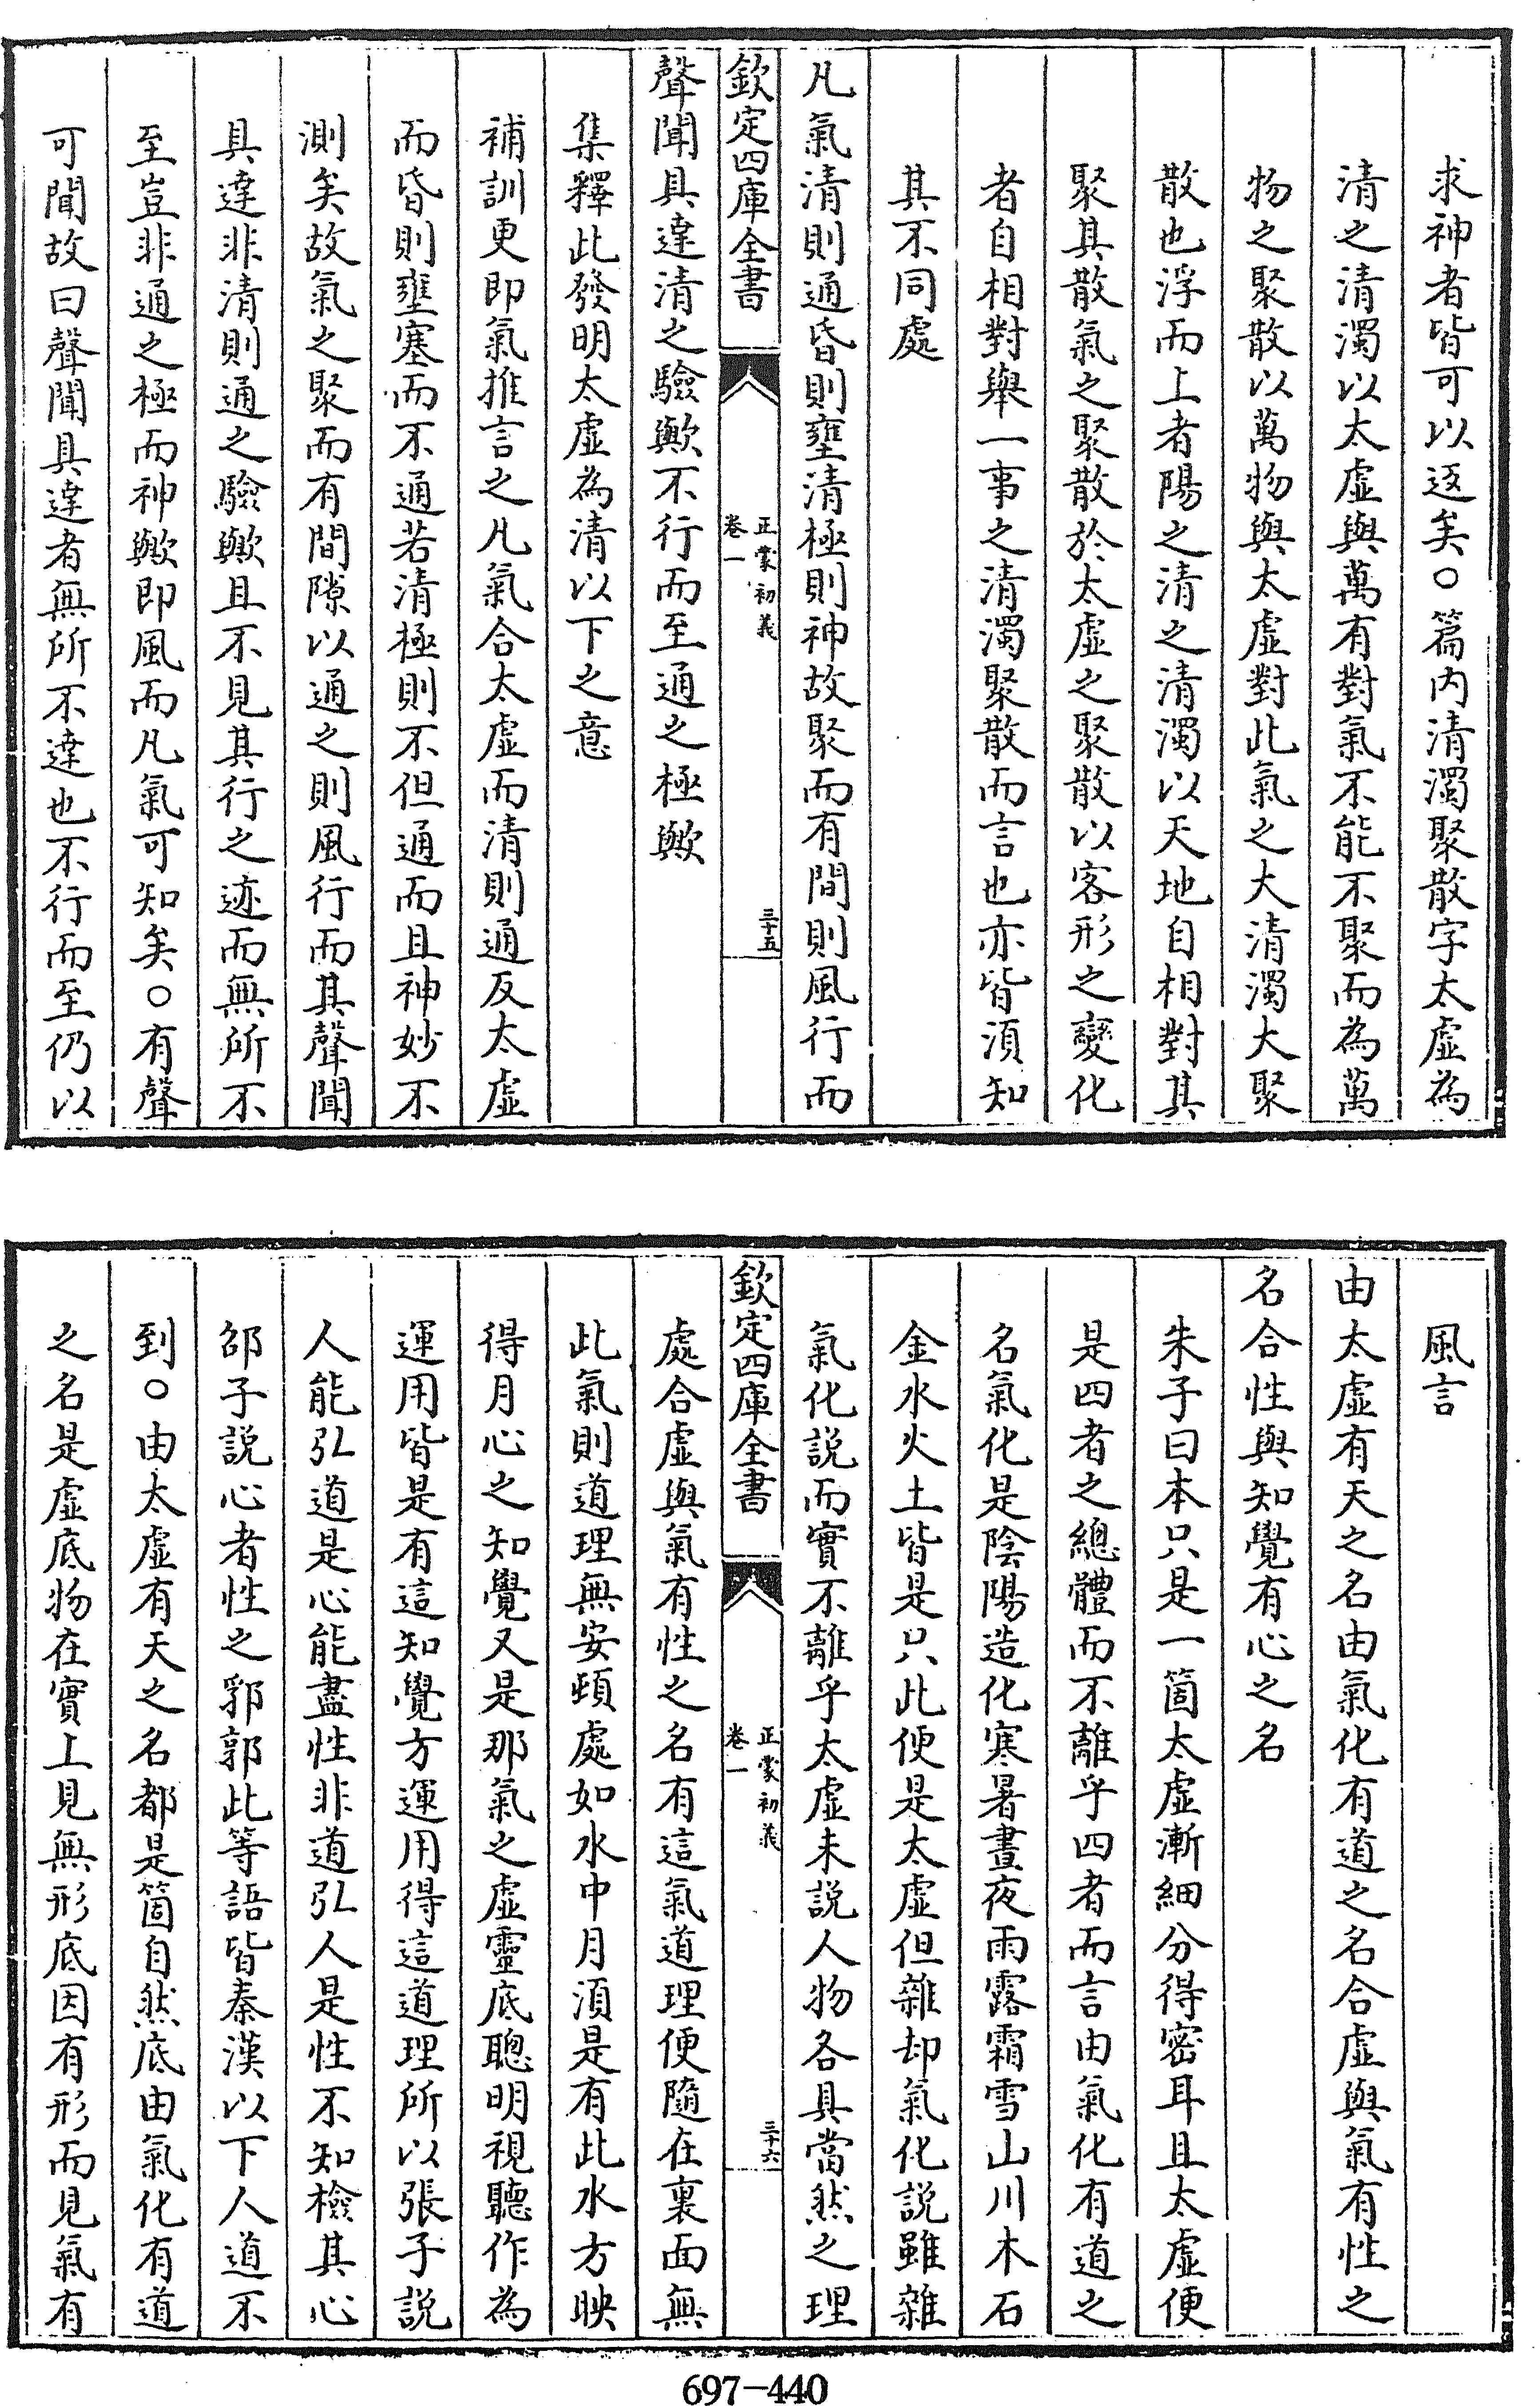 求神者皆可以返矣○篇内清濁聚散字太虛為
清之清濁以太虛與萬有對氣不能不聚而為萬
物之聚散以萬物與太虛對此氣之大清濁大聚
散也浮而上者陽之清之清濁以天地自相對其
聚其散氣之聚散於太虛之聚散以客形之變化
者自相對舉一事之清濁聚散而言也亦皆須知
其不同處
凡氣清則通昏則壅清極則神故聚而有間則風行而
欽定四庫全書
正蒙初義
卷一
三十五
聲聞具達清之驗歟不行而至通之極歟
集釋此發明太虛為清以下之意
補訓更即氣推言之凡氣合太虛而清則通反太虛
而昏則壅塞而不通若清極則不但通而且神妙不
測矣故氣之聚而有間隙以通之則風行而其聲聞
具達非清則通之驗歟且不見其行之迹而無所不
至豈非通之極而神歟即風而凡氣可知矣○有聲
可聞故曰聲聞具達者無所不達也不行而至仍以
風言
由太虛有天之名由氣化有道之名合虛與氣有性之
名合性與知覺有心之名
朱子曰本只是一箇太虛漸細分得密耳且太虛便
是四者之總體而不離乎四者而言由氣化有道之
名氣化是陰陽造化寒暑晝夜雨露霜雪山川木石
金水火土皆是只此便是太虛但雜却氣化說雖雜
氣化說而實不離乎太虛未說人物各具當然之理
欽定四庫全書
正蒙初義
卷一
三十六
處合虛與氣有性之名有這氣道理便隨在裏面無
此氣則道理無安頓處如水中月須是有此水方映
得月心之知覺又是那氣之虛靈底聰明視聽作為
運用皆是有這知覺方運用得這道理所以張子說
人能弘道是心能盡性非道弘人是性不知檢其心
邵子說心者性之郛郭此等語皆秦漢以下人道不
到○由太虛有天之名都是箇自然底由氣化有道
之名是虛底物在實上見無形底因有形而見氣有
697-440